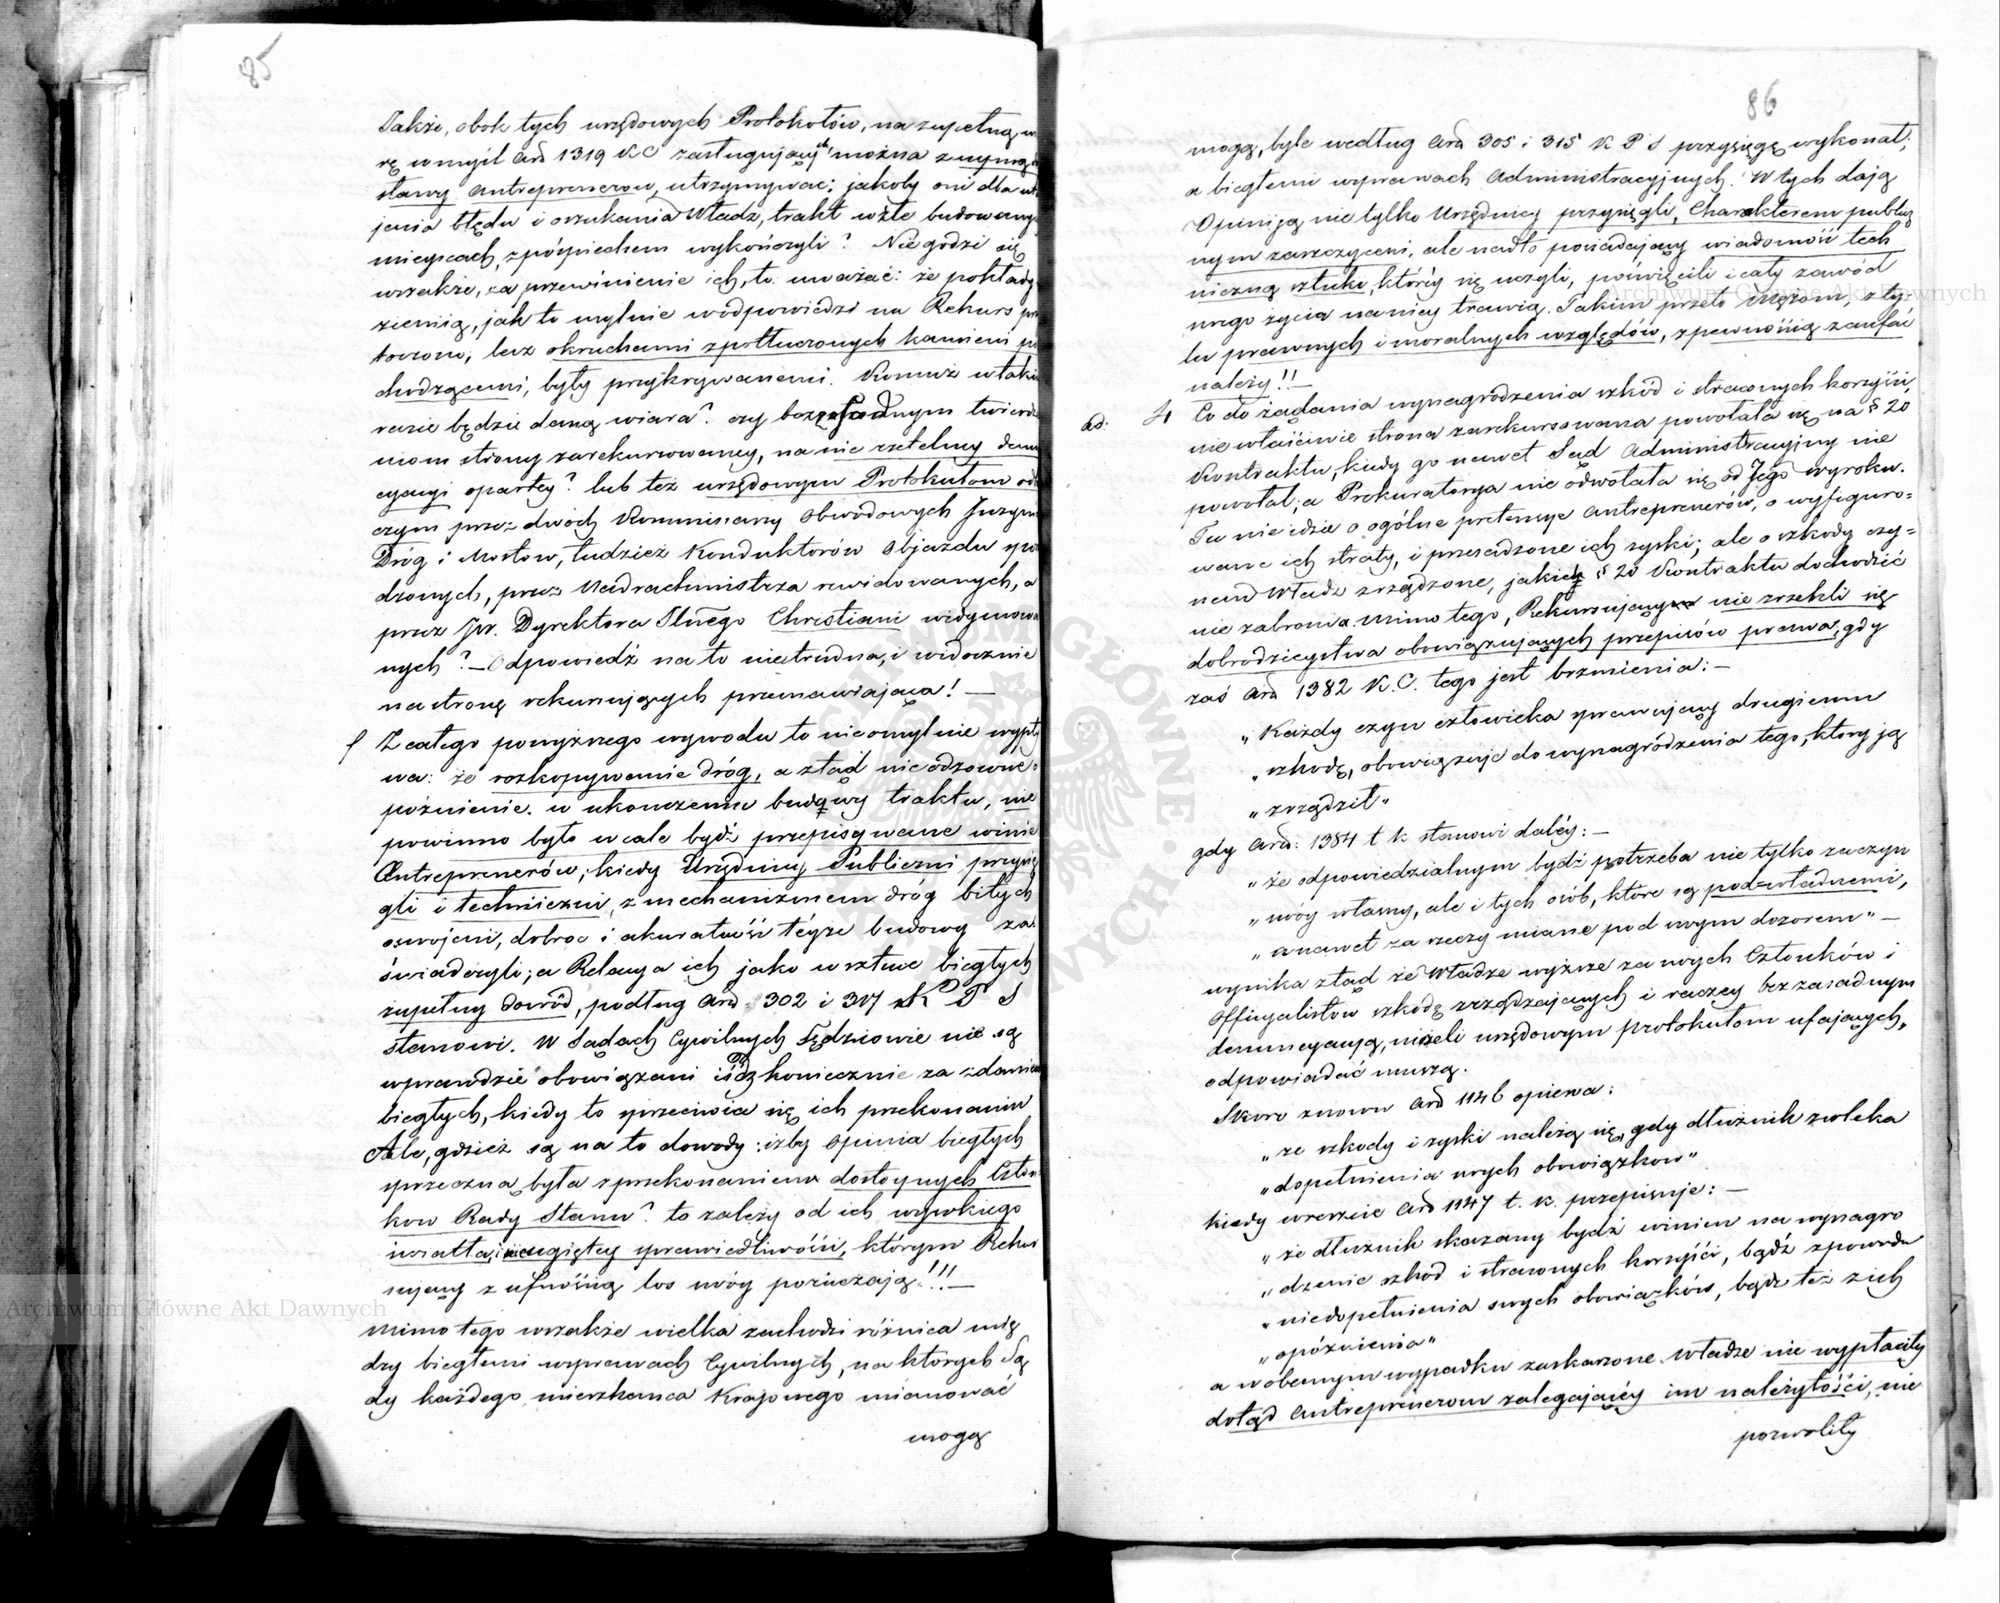 85
Także, obok tych urzędowych Protokołów, na zupełną w
rę w myśl Art 1319 KC zasługujących można z wymog
sławy Antreprenerow, utrzymywać: jakoby oni dla u
jenia błędu i oszukania Władz, trakt w źle budowany
mieyscach, z pośpiechem wykończyli? Nie godzi się
wszakże, za przewinienie ich, to uważać: że pokłady
ziemią, jak to mylnie w odpowiedzi na Rekurs prz
toczono; lecz okruchami z potłuczonych kamieni po
chodzącemi, były przykrywanemi. Komuż w takim
razie będzie daną wiara? czy bezzasadnym twierdze
niom strony zarekursowaney, na nie rzetelney denun
cyacyi opartey? lub też urzędowym Protokułom od
czym przez dwóch Kommissarzy Obwodowych Inżyn
Dróg i Mostow, tudzież Konduktorów Objazdu spo
dzonych, przez Nadrachmistrza rewidowanych, a
przez JW. Dyrektora Jlnego Christiani widymowa
nych? — Odpowiedź na to nie trudna, i widocznie
na stronę rekursujących przemawiająca! —
f Z całego powyższego wywodu to nieomylnie wypły
wa: że rozkopywanie dróg, a ztąd nieodzowne o
poźnienie w ukonczeniu budowy traktu, nie
powinno było wcale bydź przepisywane winie
Antreprenerów; kiedy Urzędnicy Publiczni przysię
gli i techniczni, z mechanizmem dróg bitych
oswojeni, dobroc i akuratność teyże budowy za
świadczyli; a Relacya ich jako w sztuce biegłych
zupełny dowód, podług Art. 302 i 307 K P S
stanowi. W Sądach Cywilnych Sędziowie nie są
wprawdzie obowiązani iśdź koniecznie za zdaniem
biegłych, kiedy to sprzeciwia się ich przekonaniu
Ale, gdzież są na to dowody: iżby opinia biegłych
sprzeczną była z przekonaniem dostoynych Człon
kow Rady Stanu? to zależy od ich wysokiego
światła, i nieugiętey sprawiedliwości, którym Rekur
sujący z ufnością los swóy poruczają!!! —
Mimo tego wszakże wielka zachodzi różnica mię
dzy biegłemi w sprawach Cywilnych, na ktorych Są
dy każdego mieszkanca Krajowego mianować
mogą
86
mogą, byle według Art 305 i 315 K P S przysięgę wykonał;
a biegłemi w sprawach Administracyjnych. W tych dają
Opiniją nie tylko Urzędnicy przysięgli, Charakterem publicz
nym zaszczyceni, ale nadto posiadający wiadomość tech
niczną sztuki, któréy się uczyli, poświęcili i cały zawód
swego życia na niey trawią. Takim przeto Mężom, z ty-
lu prawnych i moralnych względów, z pewnością zaufać
należy!! —
ad: 4 Co do żądania wynagrodzenia szkód i straconych korzyści,
nie właściwie strona zarekursowana powołała się na § 20
Kontraktu, kiedy go nawet Sąd Administracyjny nie
powołał; a Prokuratorya nie odwołała się od Jego wyroku.
Tu nie idzie o ogólne pretensye Antreprenerów, o wyfiguro=
wane ich straty, i przesadzone ich zyski; ale o szkody czy=
nem Władz zrządzone, jakich § 20 Kontraktu dochodzić
nie zabrania. Mimo tego, Rekursujący nie zrzekli się
dobrodzieystwa obowiązujących przepisów prawa, gdy
zaś Art 1382 K.C. tego jest brzmienia: —
„Każdy czyn człowieka sprawujący drugiemu
„szkodę, obowiązuje do wynagródzenia tego, ktory ją
„zrządził"
gdy Art: 1384 t k stanowi daléy: —
„że odpowiedzialnym bydź potrzeba nie tylko za czyn
„swóy własny, ale i tych osób, które są pod=władnemi,
„a nawet za rzeczy miane pod swym dozorem" —
wynika ztąd że Władze wyższe za swych Członków i
Officyalistow szkodę zrządzających i raczey bezzasadnym
denuncyacyą, niżeli urzędowym protokułom ufających,
odpowiadać muszą.
Skoro znowu Art 1146 opiewa:
„że szkody i zyski należą się, gdy dłużnik zwleka
„dopełnienia swych obowiązkow"
kiedy wreszcie Art 1147 t. k. przepisuje: —
„że dłużnik skazany bydź winien na wynagro
„dzenie szkod i straconych korzyści, bądź z powodu
„niedopełnienia swych obowiązków, bądź też z ich
„opóźnienia"
a w obecnym wypadku zaskarzone Władze nie wypłaciły
dotąd Antreprenerom zalegającéy im należytości, nie
pozwoliły